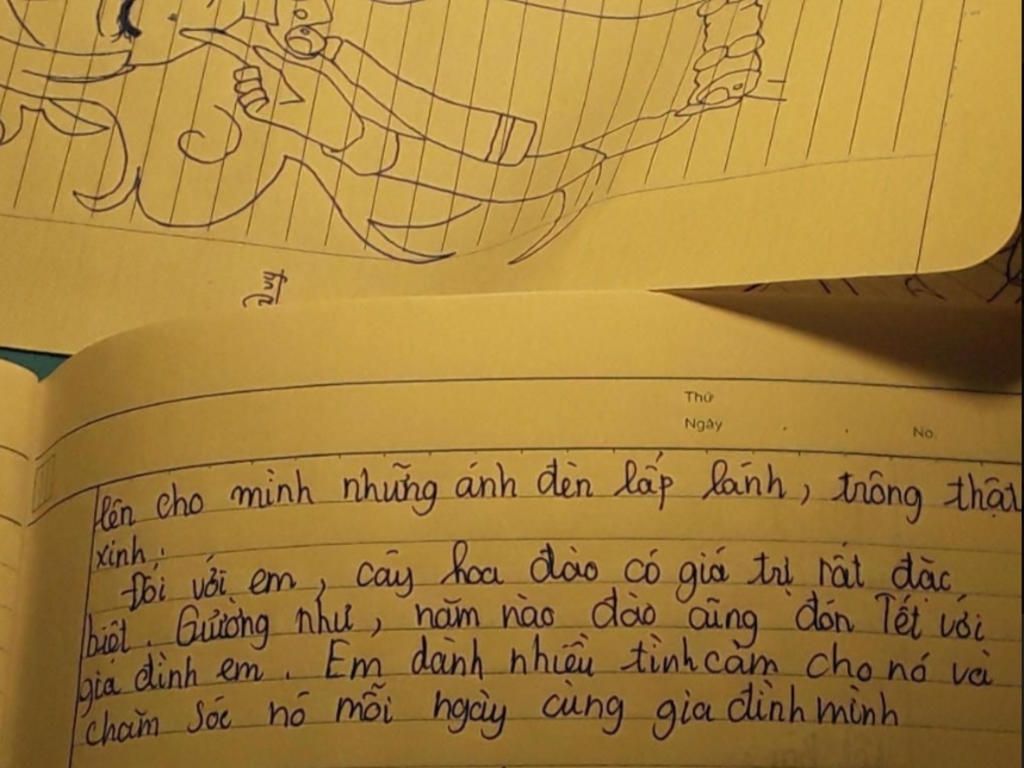 Duy
Thứ
Ngày . . No.
lên cho mình những ánh đèn lấp lánh, trông thật
xinh.
Đối với em, cây hoa đào có giá trị rất đặc
biệt. Gường như, năm nào đào cũng đón Tết với
gia đình em. Em dành nhiều tình cảm cho nó và
chăm sóc nó mỗi ngày cùng gia đình mình